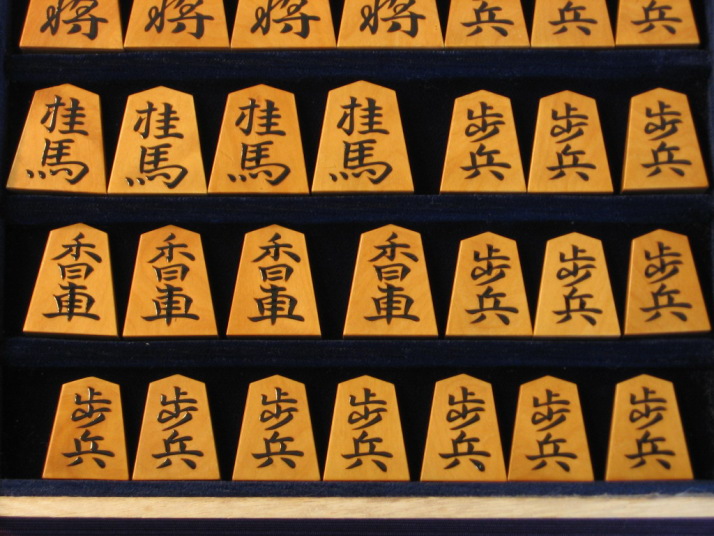 将 将 将 将 兵 兵 兵
桂馬 桂馬 桂馬 桂馬 歩兵 歩兵 歩兵
香車 香車 香車 香車 歩兵 歩兵 歩兵
歩兵 歩兵 歩兵 歩兵 歩兵 歩兵 歩兵